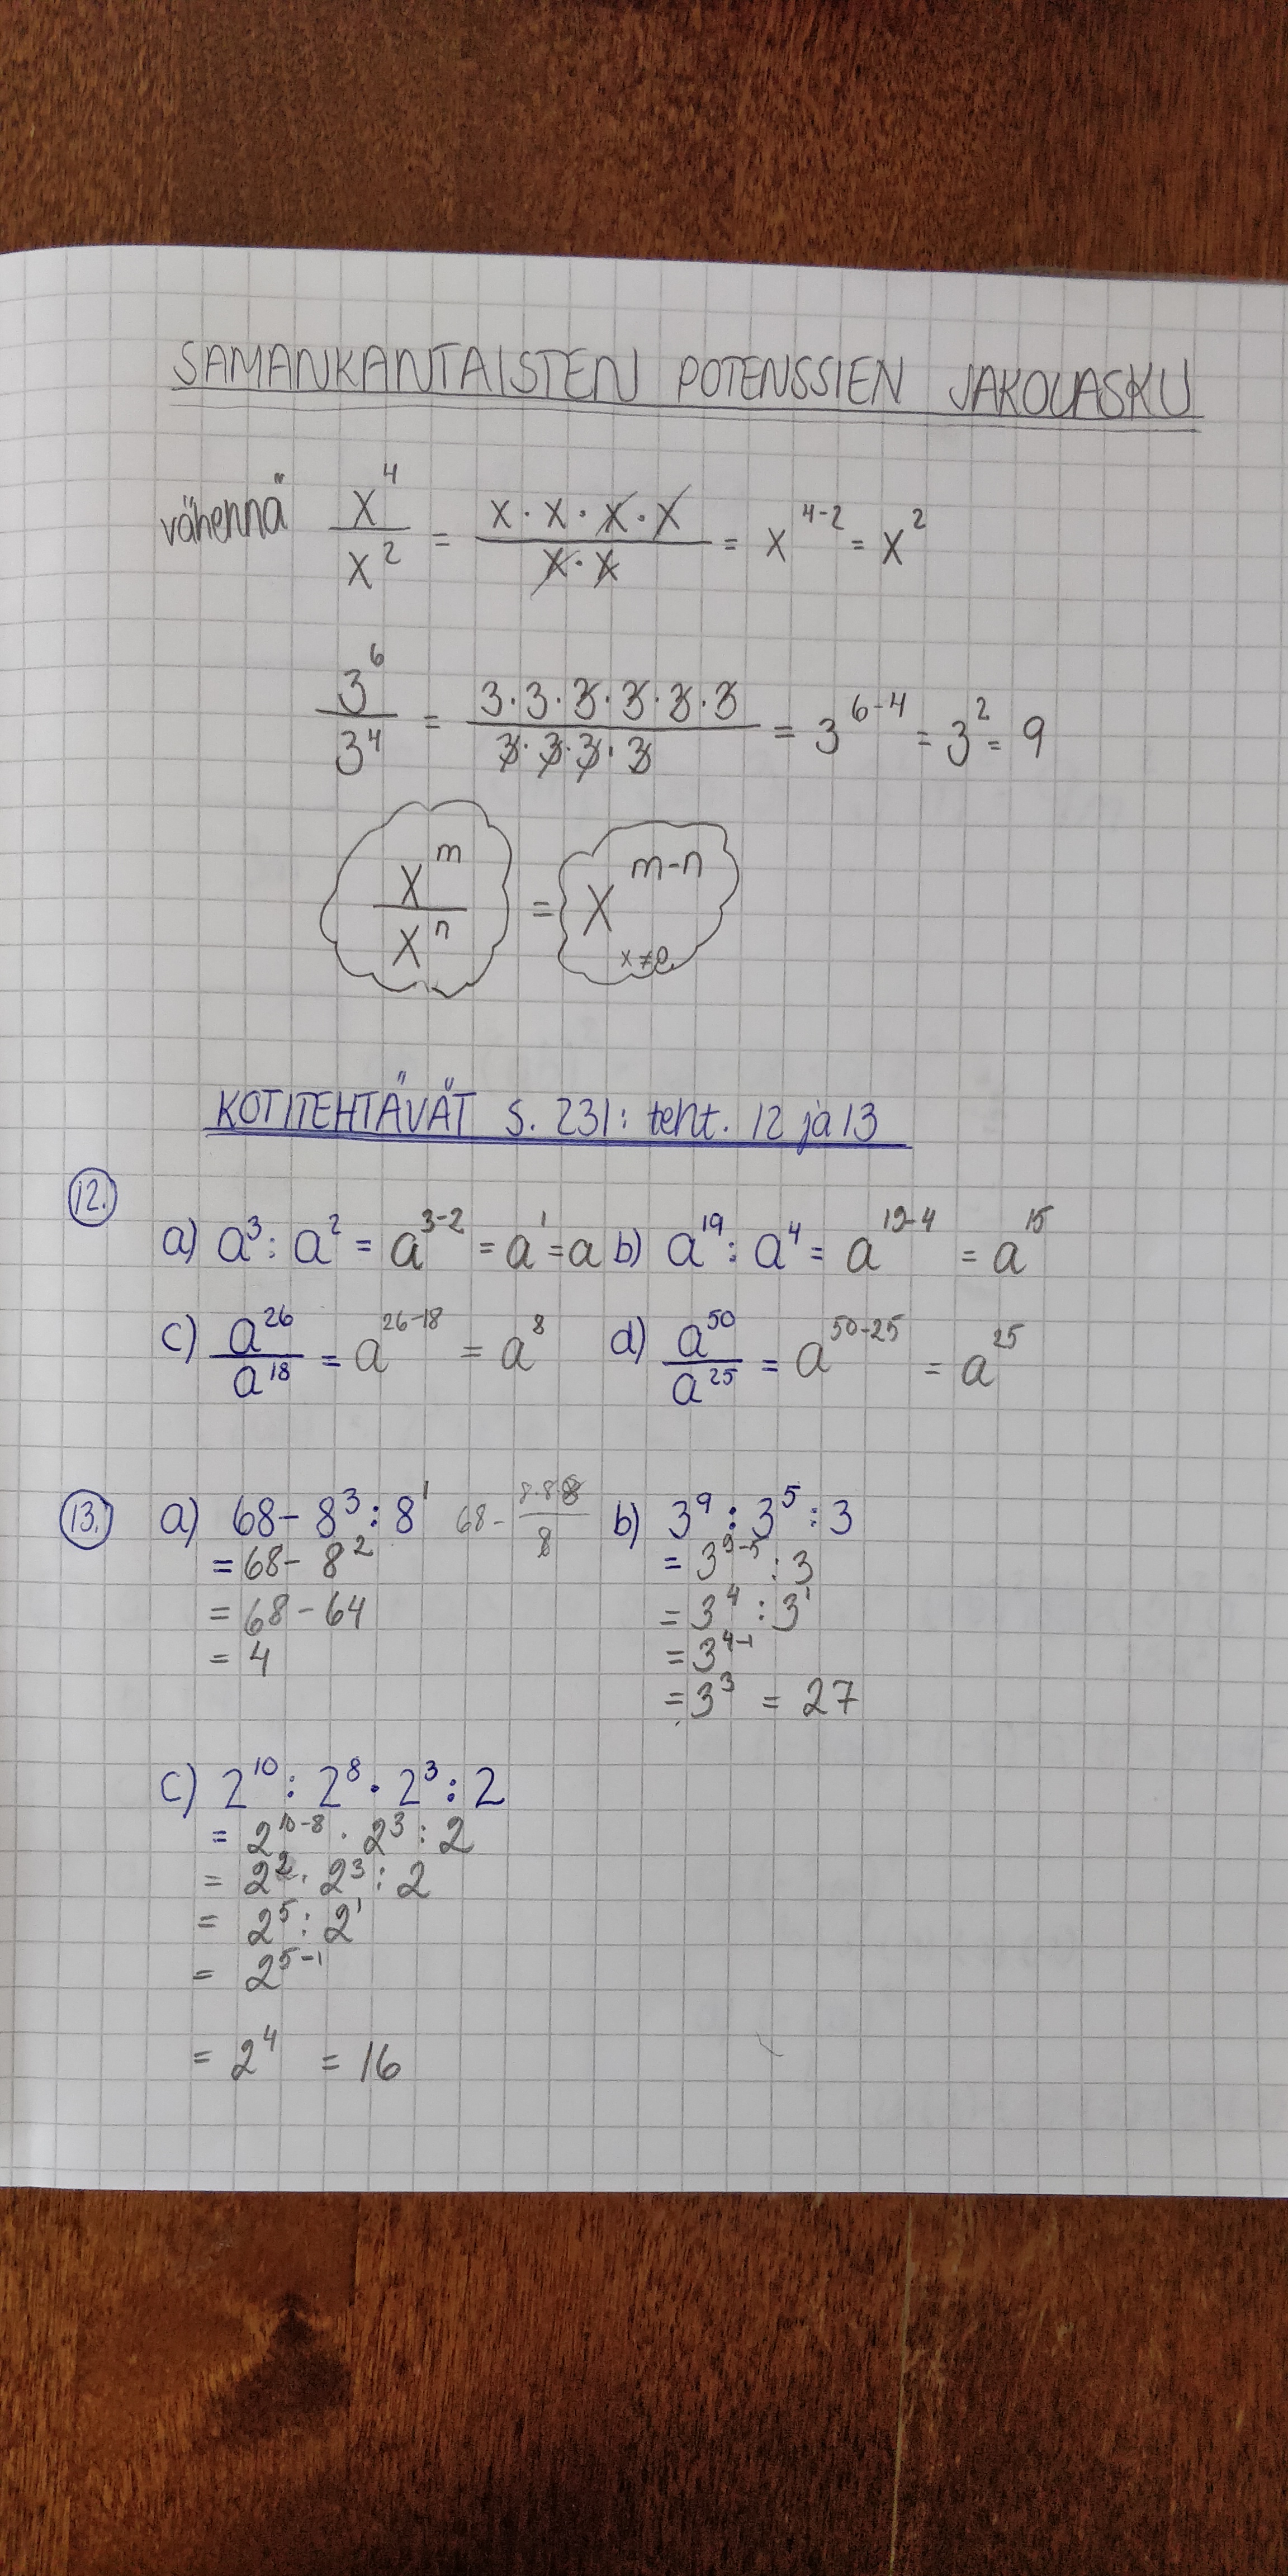 SAMANKANTAISTEN POTENSSIEN JAKOLASKU
vähennä x⁴/x² = x · x · x · x / x · x = x⁴⁻² = x²
3⁶/3⁴ = 3 · 3 · 3 · 3 · 3 · 3 / 3 · 3 · 3 · 3 = 3⁶⁻⁴ = 3² = 9
xᵐ/xⁿ = xᵐ⁻ⁿ x ≠ 0
KOTITEHTÄVÄT s. 231: teht. 12 ja 13
12.
a) a³ : a² = a³⁻² = a¹ = a b) a¹⁹ : a⁴ = a¹⁹⁻⁴ = a¹⁵
c) a²⁶/a¹⁸ = a²⁶⁻¹⁸ = a⁸ d) a⁵⁰/a²⁵ = a⁵⁰⁻²⁵ = a²⁵
13.
a) 68 - 8³ : 8¹ 68 - 8·8·8/8
= 68 - 8²
= 68 - 64
= 4
b) 3⁹ : 3⁵ : 3
= 3⁹⁻⁵ : 3
= 3⁴ : 3¹
= 3⁴⁻¹
= 3³ = 27
c) 2¹⁰ : 2⁸ · 2³ : 2
= 2¹⁰⁻⁸ · 2³ : 2
= 2² · 2³ : 2
= 2⁵ : 2¹
= 2⁵⁻¹
= 2⁴ = 16